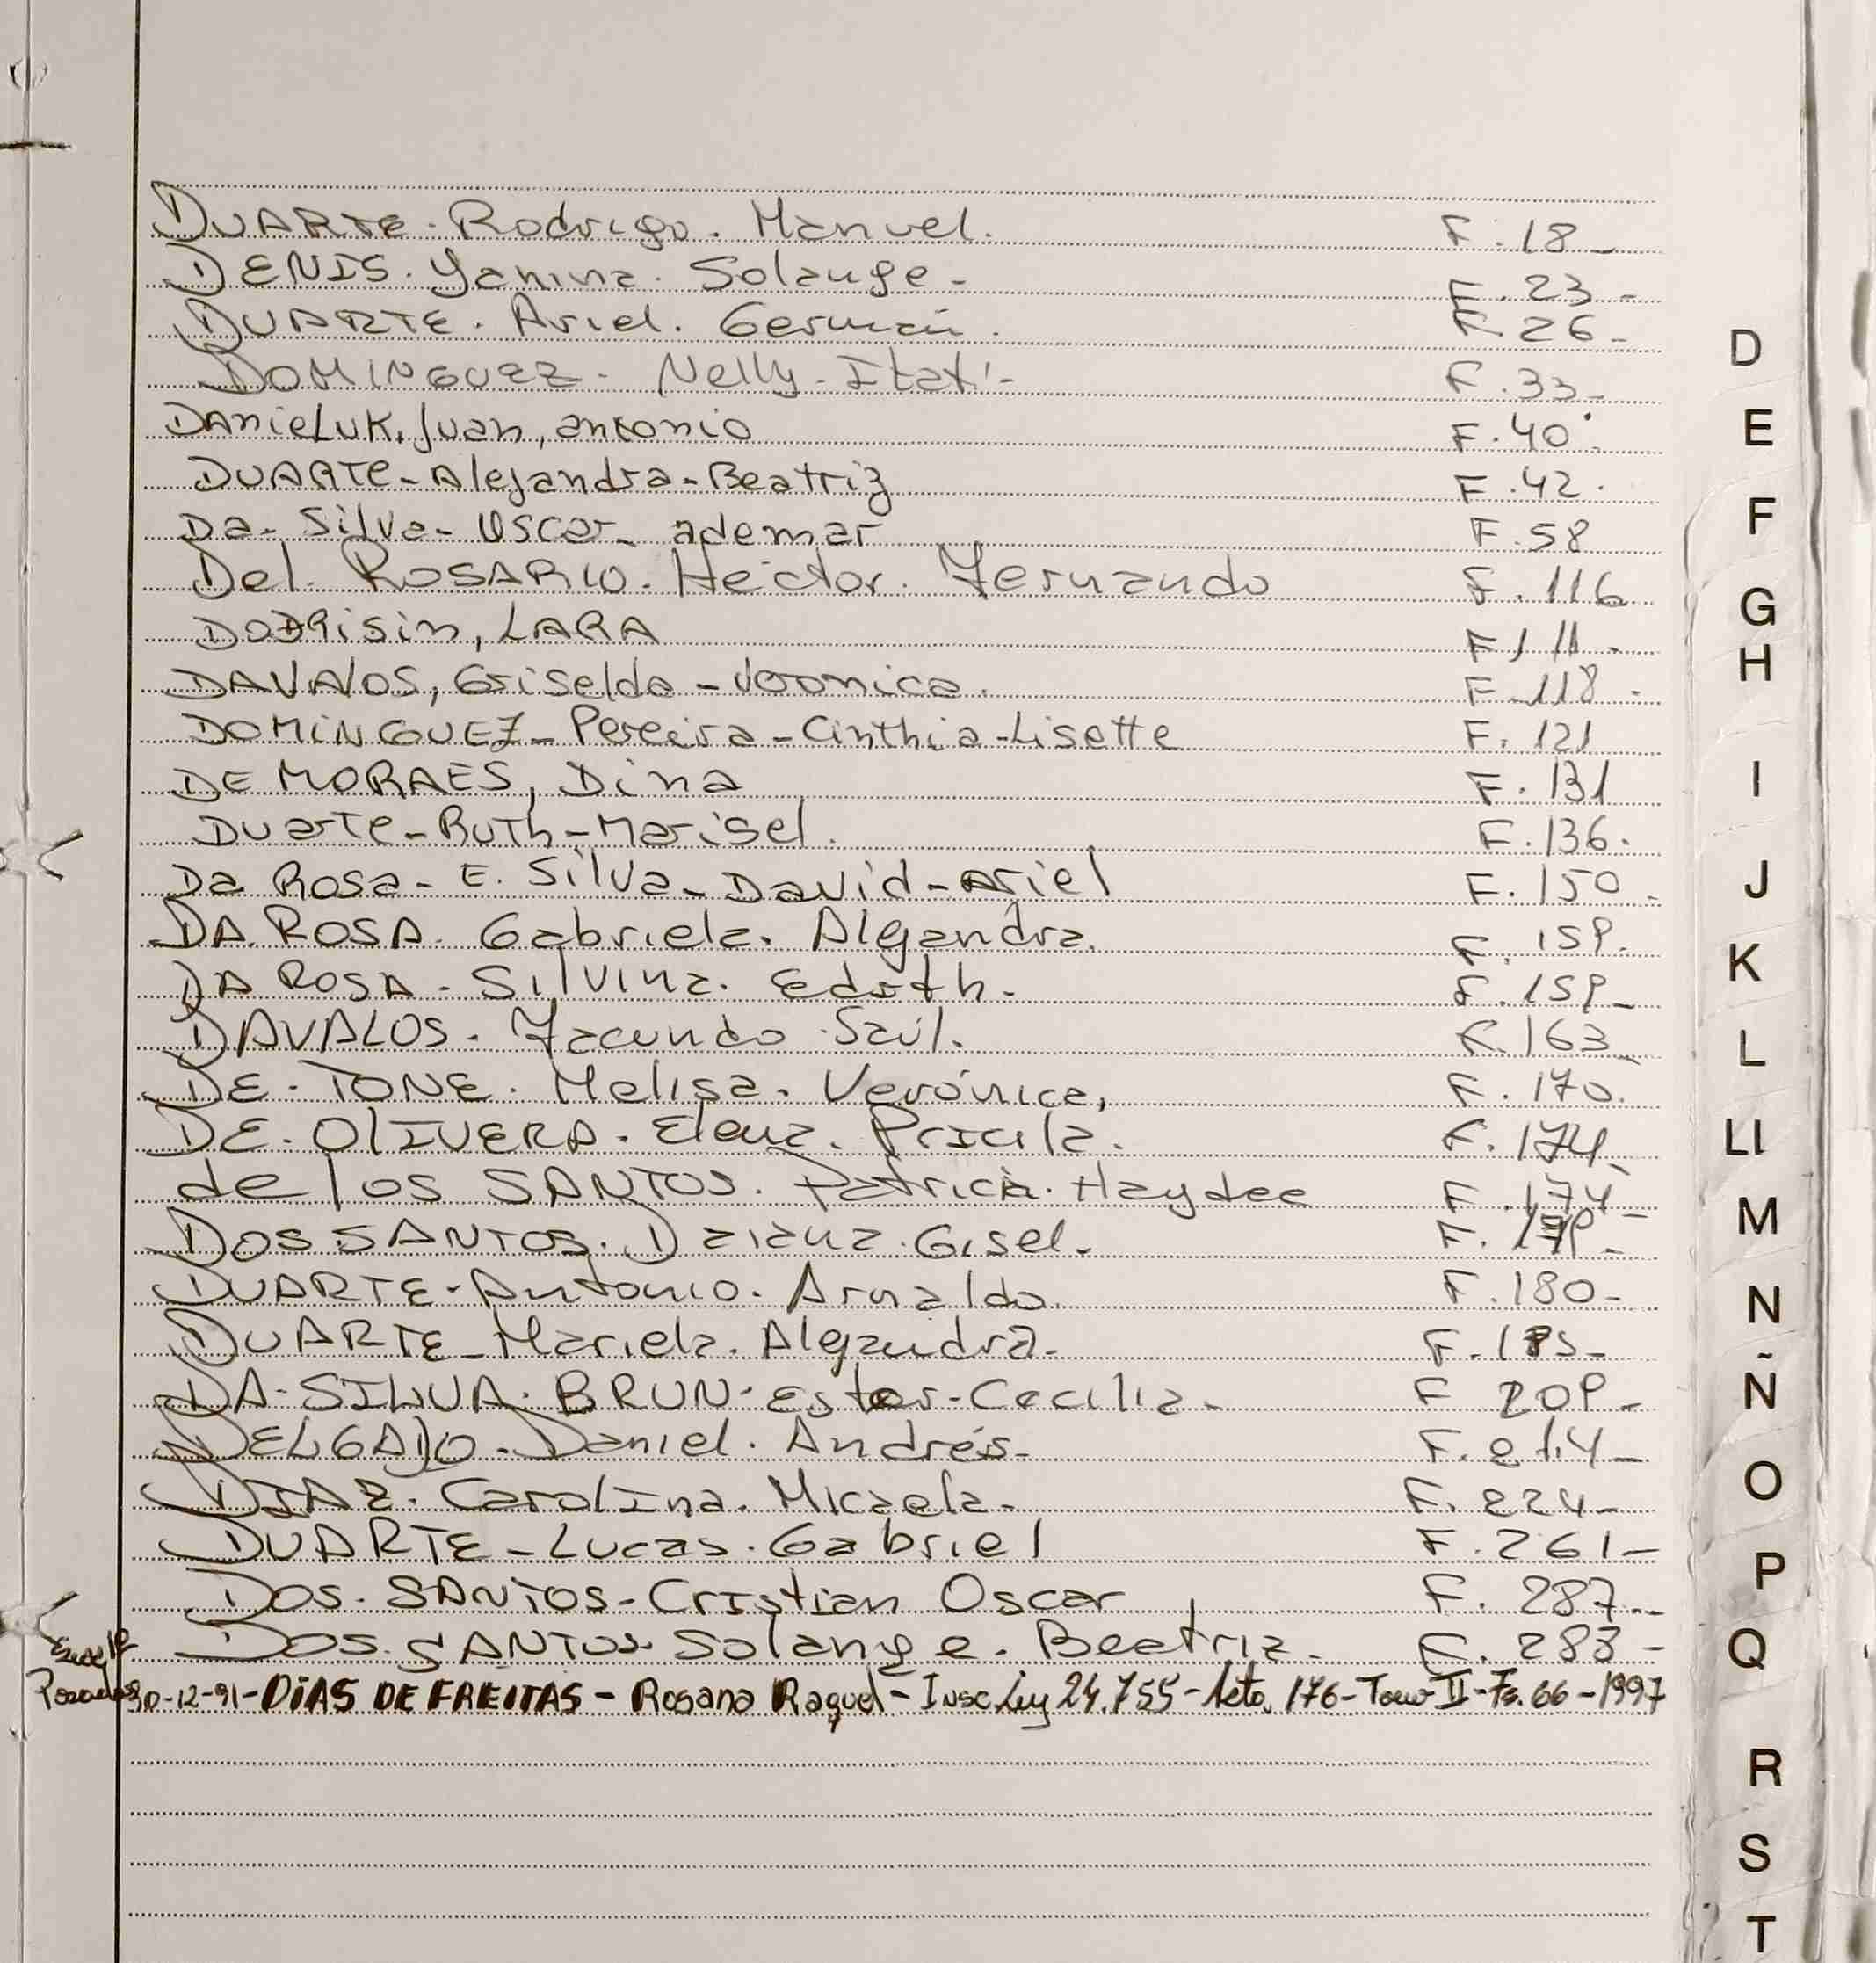 DUARTE. Rodrigo. Manuel. F. 18_
DENIS. Yanina. Solange_ F. 23_
DUARTE. Ariel. Germán. F. 26_
DOMINGUEZ. Nelly. Itatí_ F. 33_
DAnieLUK, Juan, antonio F. 40.
DUARTe_Alejandra_Beatriz F. 42.
Da_ Silva_ Oscar_ ademar F. 58
Del. ROSARIO. Hector. Fernando F. 116
DOBRisin, LARA F 111.
DAVALOS, Griselda_Veronica. F_118.
DOMiNGUEZ_Pereira_Cinthia_Lisette F. 121
DE MORAES, Dina F. 131
Duarte_Ruth_Marisel. F. 136.
Da Rosa_ E. Silva_David_Ariel F. 150_
DA ROSA. Gabriela. Alejandra. F. 159.
DA ROSA. Silvina. Edith. F. 159_
DAVALOS. Facundo Saúl. F. 163_
DE. TONE. Melisa. Verónica, F. 170.
DE. OlIVERA. Elena. Pricila. F. 174_
de los SANTOS. Patricia. Haydee F. 174_
DOS SANTOS. Daiana. Gisel. F.
DUARTE. Antonio. Arnaldo. F. 180_
DUARTE_Mariela. Alejandra. F.
DA. SILVA. BRUN. Ester. Cecilia_ F 209_
DELGADO. Daniel. Andrés_ F. 214_
DIAZ. Carolina. Micaela_ F. 224_
DUARTE_Lucas. Gabriel F. 261_
DOS. SANTOS_Cristian Oscar F. 287_
DOS. SANTOS Solange. Beatriz. F. 283_
Posadas 30-12-91-DiAS DE FREITAS - Rosana Raquel - Insc Ley 24.755 - Acta. 176 - Tomo II - Fº. 66 - 1997
D
E
F
G
H
I
J
K
L
Ll
M
N
Ñ
O
P
Q
R
S
T